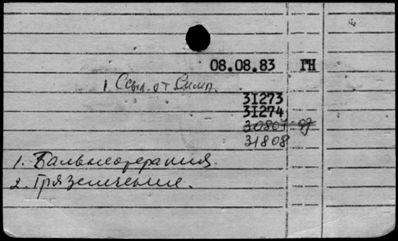 08.08.83 ГН
1. Ссыл. от Симп.
31273
31274
30807-09
31808
1. Бальнеотерапия.
2. Грязелечение.